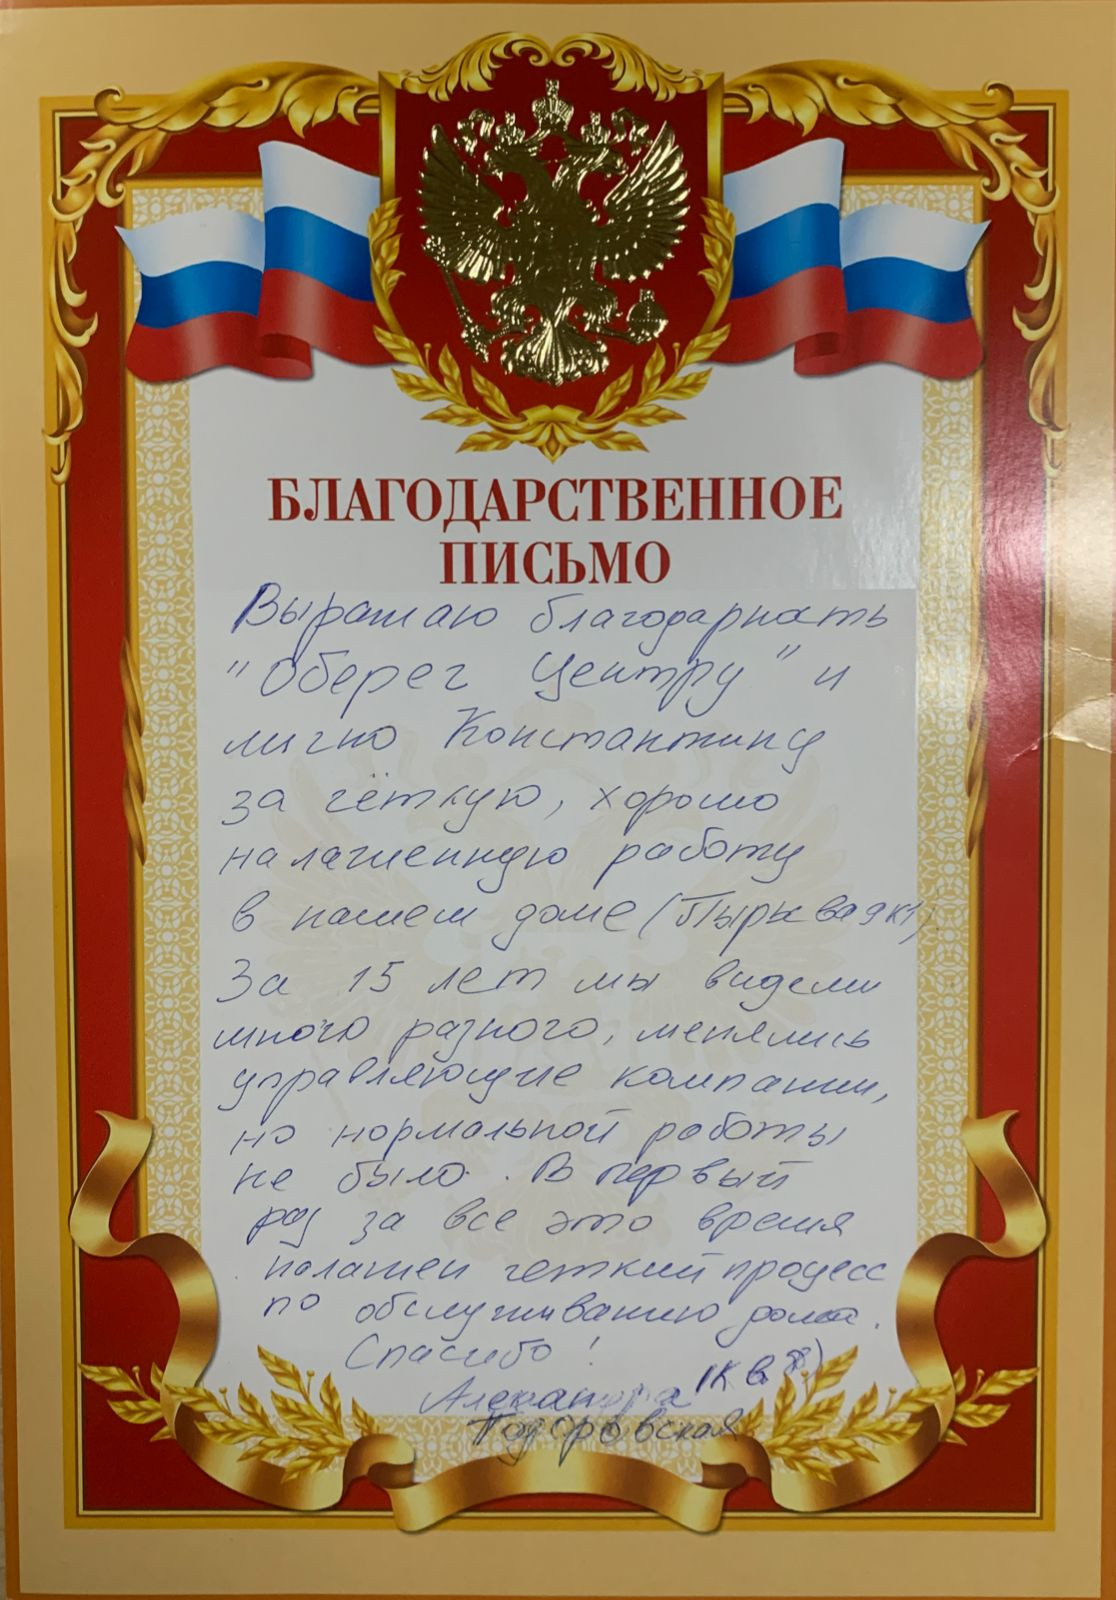 БЛАГОДАРСТВЕННОЕ
ПИСЬМО
Выражаю благодарность
"Оберег Центру" и
лично Константину
за чёткую, хорошо
налаженную работу
в нашем доме (Пырьева д
За 15 лет мы видели
много разного, менялись
управляющие компании,
но нормальной работы
не было. В первый
раз за все это время
налажен четкий процесс
по обслуживанию дома.
Спасибо!
Александра (кв.